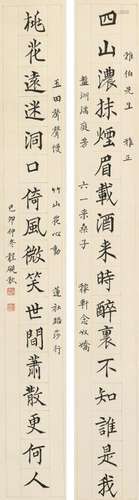 四山濃抹煙眉載酒來時醉裏不知誰是我
雅伯先生 雅正
盤洲滿庭芳 六一采桑子 稼軒念奴嬌
桃花遠迷洞口倚風微笑世間蕭散更何人
玉田聲聲慢 竹山花心動 蓮社踏莎行
己卯仲冬